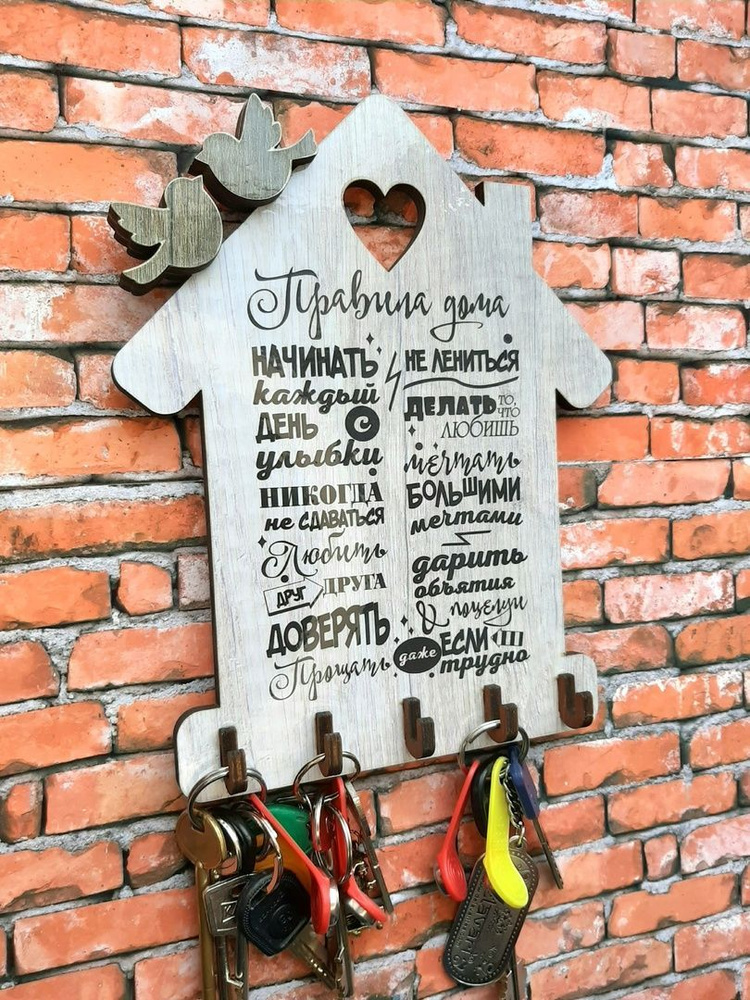 Правила дома
НАЧИНАТЬ
каждый
ДЕНЬ С
улыбки
НИКОГДА
не СДАВАТЬСЯ
Любить
ДРУГ ДРУГА
ДОВЕРЯТЬ
Прощать даже ЕСЛИ
трудно
НЕ ЛЕНИТЬСЯ
ДЕЛАТЬ ТО,
ЧТО
ЛЮБИШЬ
мечтать
БОЛЬШИМИ
мечтами
дарить
объятия
& поцелуи